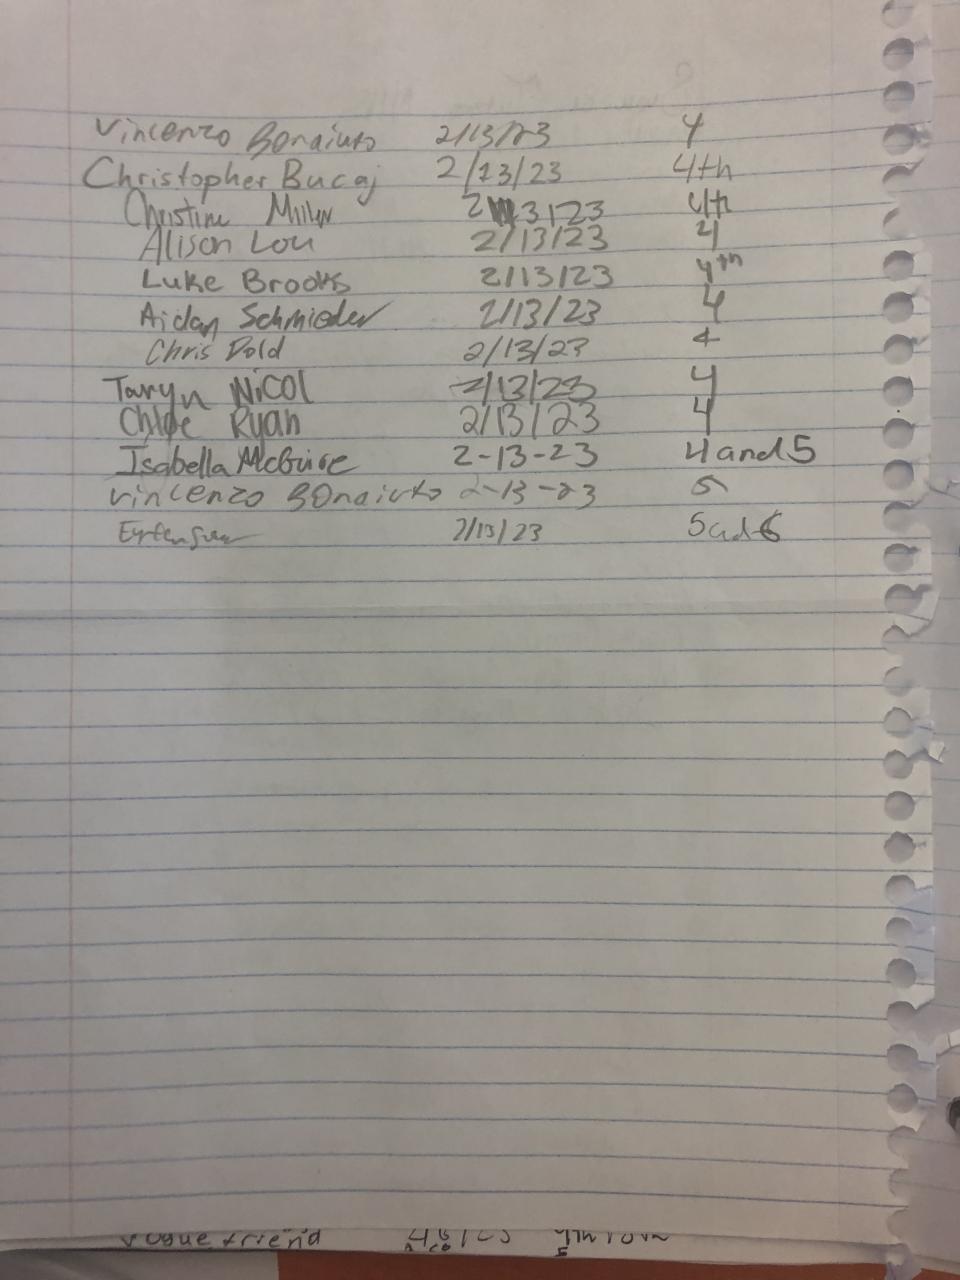 Vincenzo Bonaiuto 2/13/23 4
Christopher Bucaj 2/13/23 4th
Christine Miller 2/13/23 4th
Alison Lou 2/13/23 4
Luke Brooks 2/13/23 4th
Aidan Schmieder 2/13/23 4
Chris Dold 2/13/23 4
Taryn Nicol 2/13/23 4
Chloe Ryan 2/13/23 4
Isabella McGuire 2-13-23 4 and 5
Vincenzo Bonaiuto 2-13-23 5
2/13/23 5 and 6